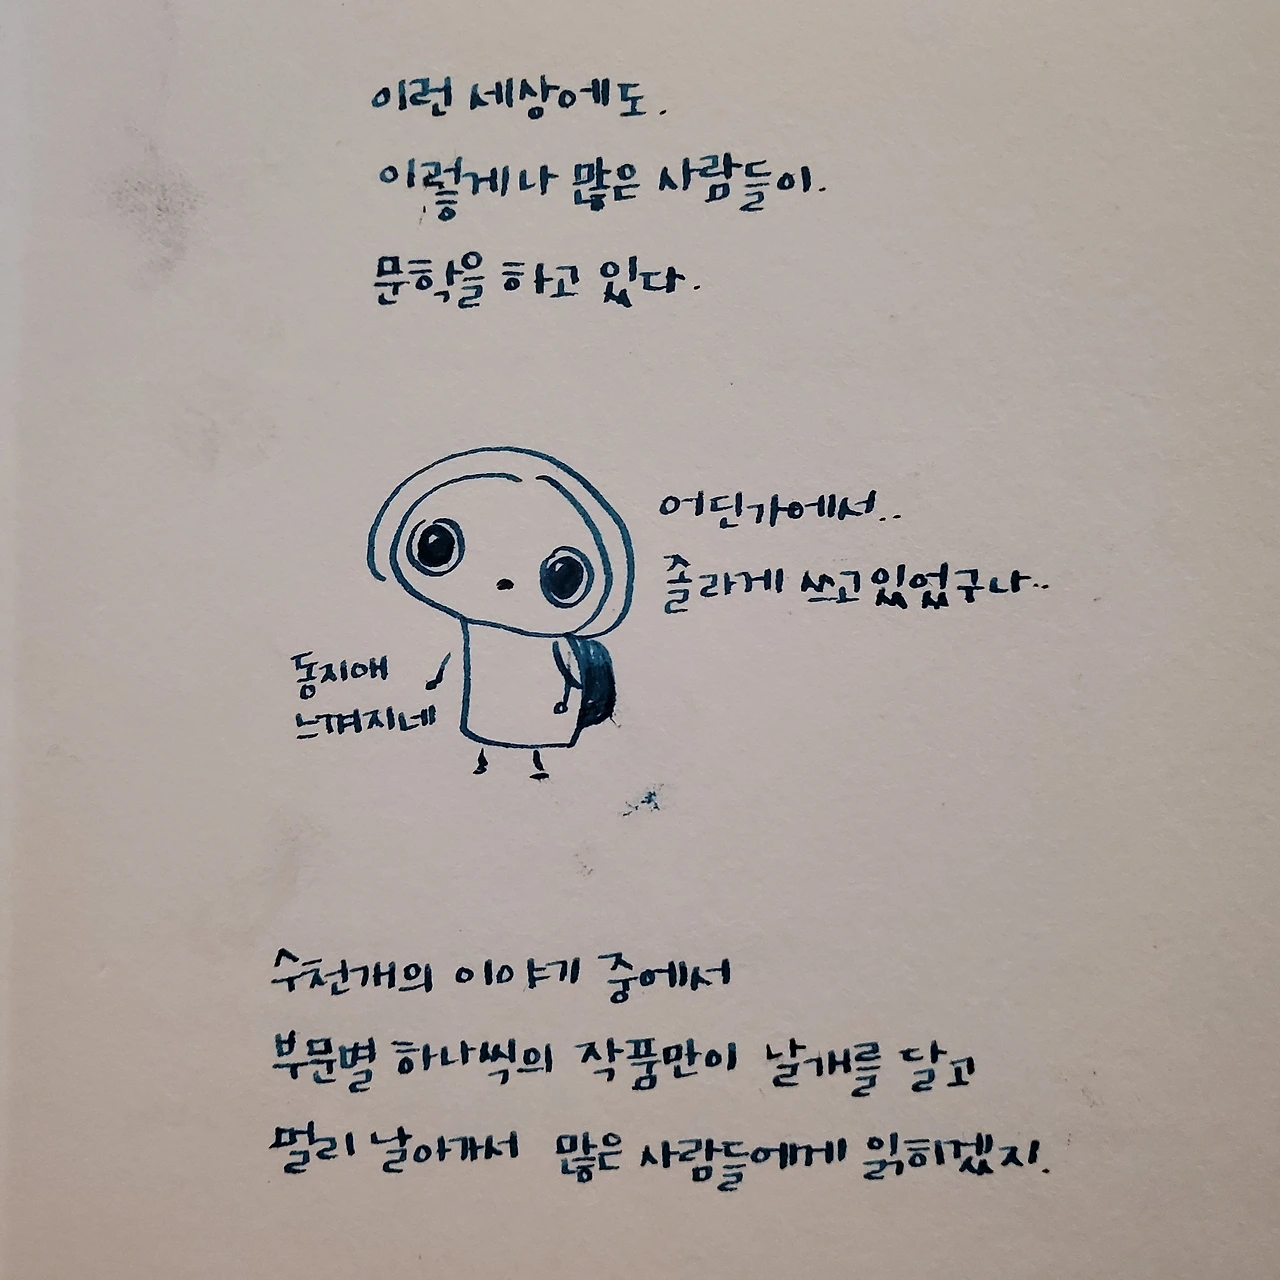 이런 세상에도.
이렇게나 많은 사람들이.
문학을 하고 있다.
어딘가에서..
졸라게 쓰고있었구나..
동지애
느껴지네
수천개의 이야기 중에서
부문별 하나씩의 작품만이 날개를 달고
멀리 날아가서 많은 사람들에게 읽히겠지.